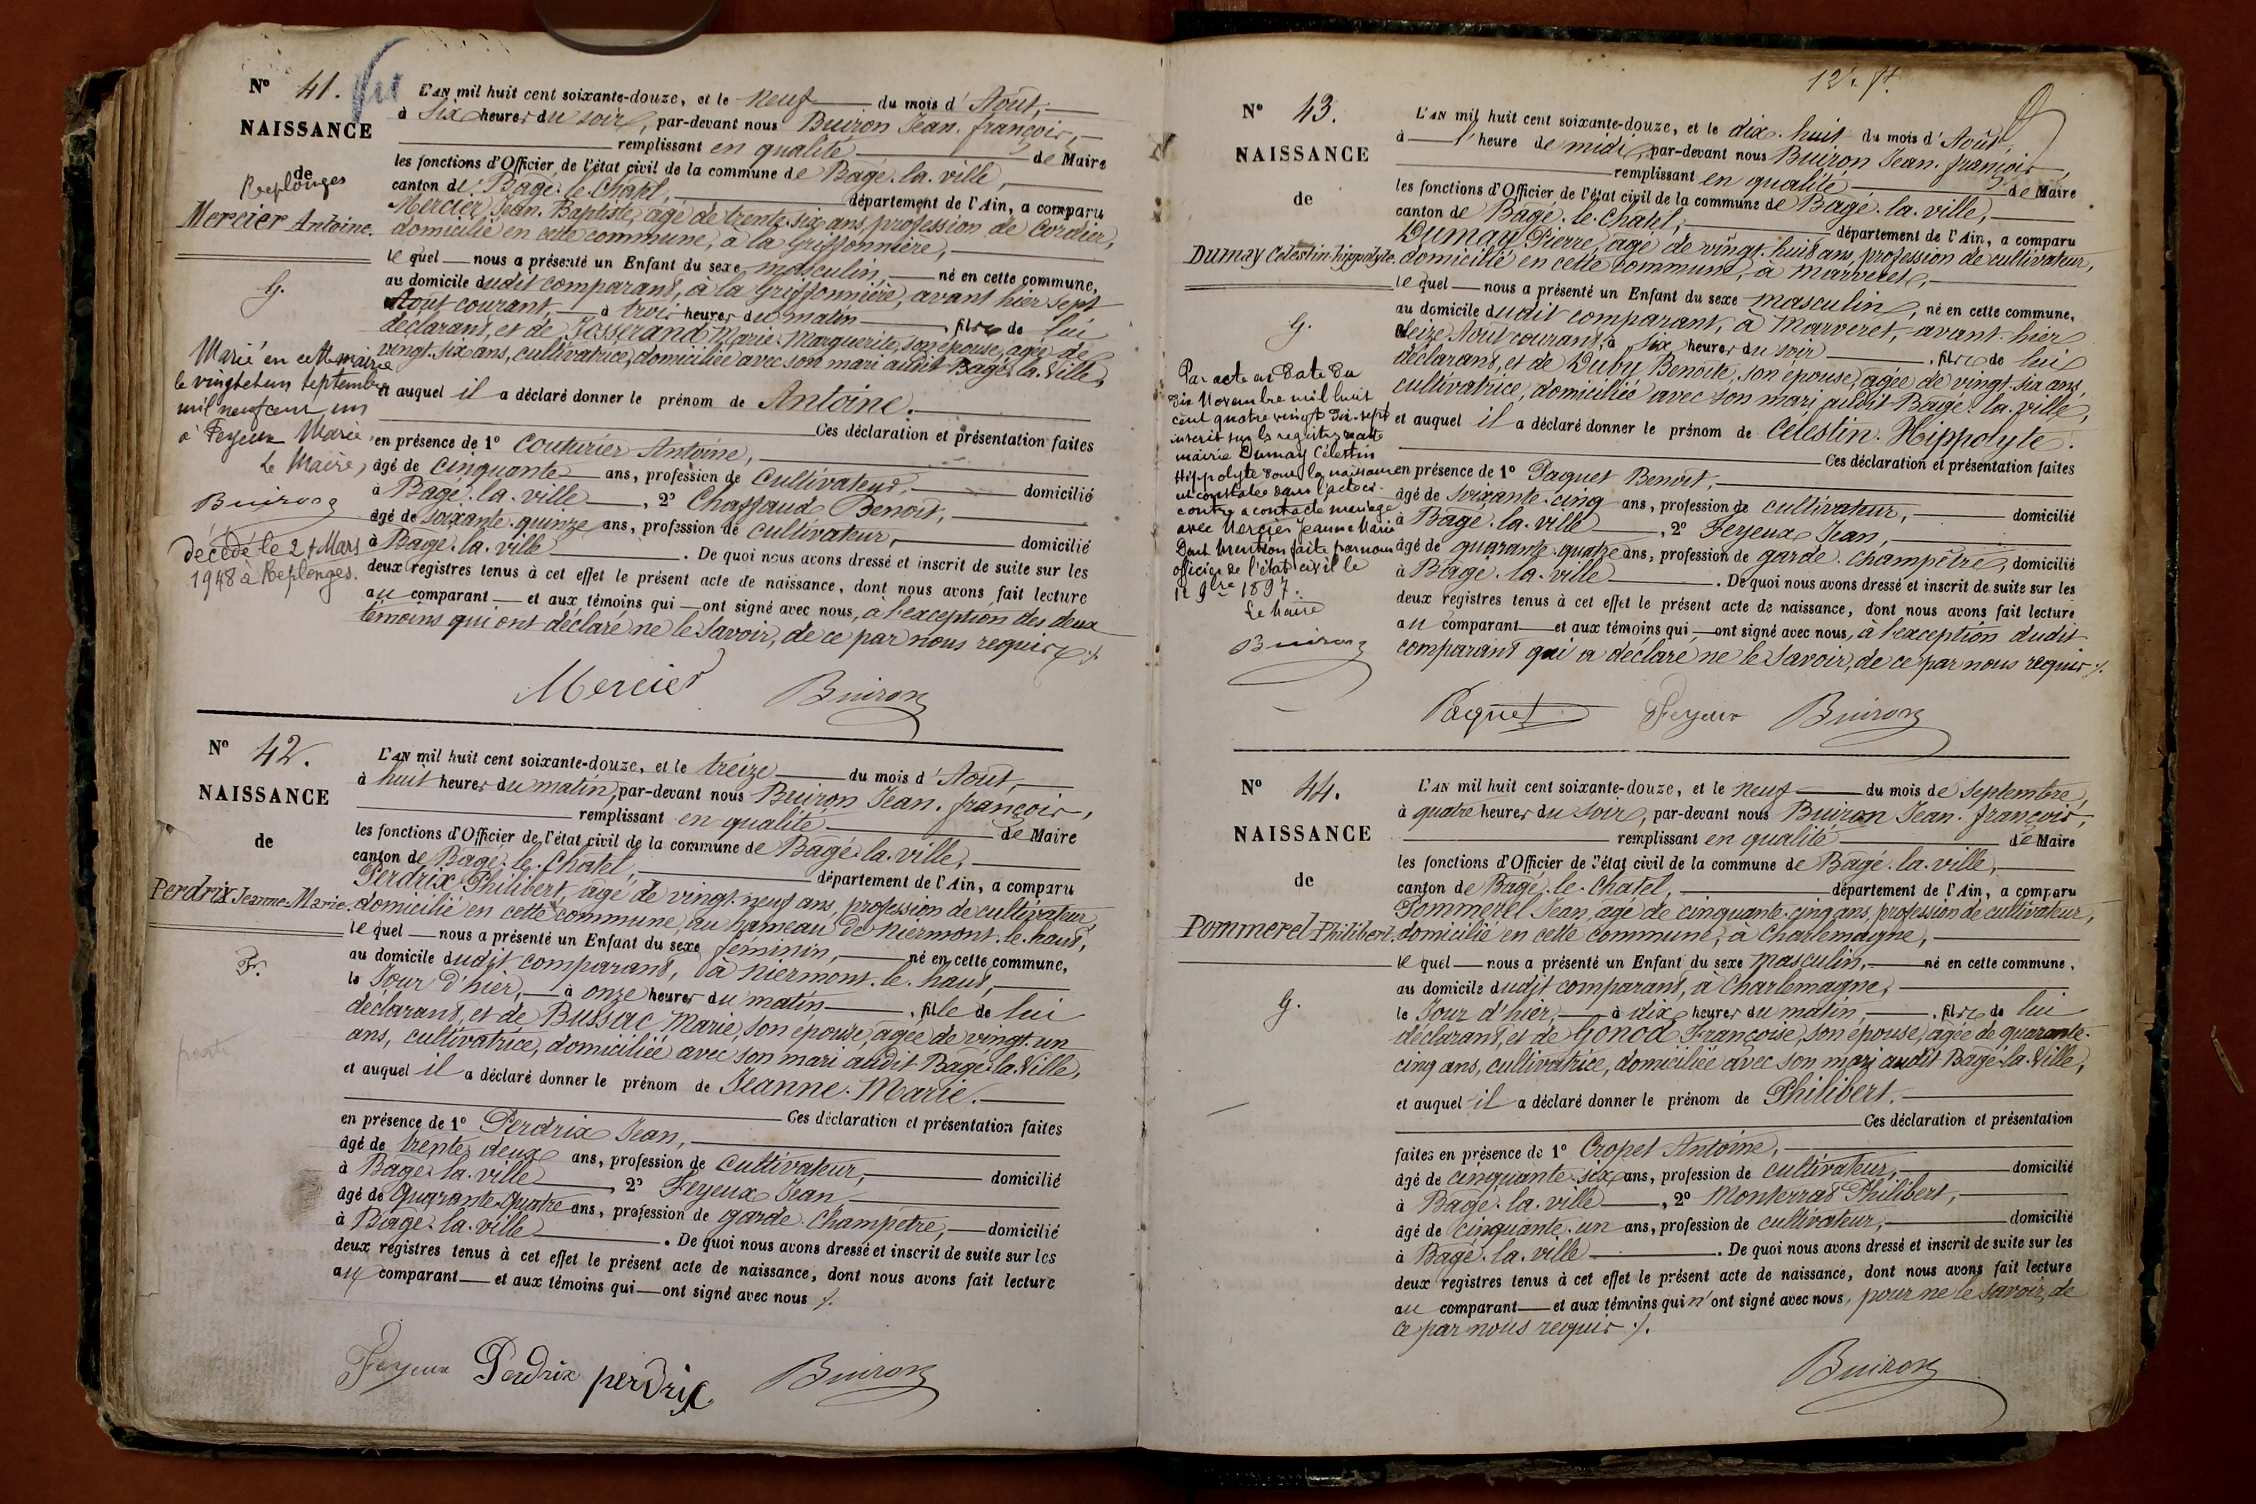 N° 41.
NAISSANCE
de
Replonges
Mercier Antoine.
G.
Marié en cette mairie
le vingt et un septembre
mil neuf cent un
à Feyeux Marie,
Le Maire,
Buiron
décédé le 24 Mars
1948 à Replonges.
L'AN mil huit cent soixante-douze, et le neuf du mois d'Août,
à six heures du soir, par-devant nous Buiron Jean-François,
remplissant en qualité de Maire
les fonctions d'Officier de l'état civil de la commune de Bagé-la-ville,
canton de Bagé-le-Châtel, département de l'Ain, a comparu
Mercier Jean-Baptiste, âgé de trente-six ans, profession de Cordier,
domicilié en cette commune, à la Griffonnière,
lequel nous a présenté un Enfant du sexe masculin, né en cette commune,
au domicile dudit comparant, à la Griffonnière, avant hier sept
Août courant, à trois heures du matin, fils de lui
déclarant, et de Josserand Marie-Marguerite, son épouse, âgée de
vingt-six ans, cultivatrice, domiciliée avec son mari audit Bagé-la-Ville,
et auquel il a déclaré donner le prénom de Antoine.
Ces déclaration et présentation faites
en présence de 1° Couturier Antoine,
âgé de cinquante ans, profession de Cultivateur, domicilié
à Bagé-la-ville, 2° Chaffaud Benoit,
âgé de soixante-quinze ans, profession de cultivateur, domicilié
à Bagé-la-ville. De quoi nous avons dressé et inscrit de suite sur les
deux registres tenus à cet effet le présent acte de naissance, dont nous avons fait lecture
au comparant et aux témoins qui ont signé avec nous, à l'exception des deux
témoins qui ont déclaré ne le savoir, de ce par nous requis ./.
Mercier Buiron
N° 42.
NAISSANCE
de
Perdrix Jeanne-Marie.
F.
L'AN mil huit cent soixante-douze, et le treize du mois d'Août,
à huit heures du matin, par-devant nous Buiron Jean-François,
remplissant en qualité de Maire
les fonctions d'Officier de l'état civil de la commune de Bagé-la-ville,
canton de Bagé-le-Châtel, département de l'Ain, a comparu
Perdrix Philibert, âgé de vingt-neuf ans, profession de cultivateur,
domicilié en cette commune, au hameau de Niermont-le-haut,
lequel nous a présenté un Enfant du sexe féminin, né en cette commune,
au domicile dudit comparant, à Niermont-le-haut,
le Jour d'hier, à onze heures du matin, fille de lui
déclarant, et de Bussac Marie, son épouse, âgée de vingt-un
ans, cultivatrice, domiciliée avec son mari audit Bagé-la-Ville,
et auquel il a déclaré donner le prénom de Jeanne-Marie.
Ces déclaration et présentation faites
en présence de 1° Perdrix Jean,
âgé de trente-deux ans, profession de cultivateur, domicilié
à Bagé-la-ville, 2° Feyeux Jean
âgé de Quarante-Quatre ans, profession de garde-Champêtre, domicilié
à Bagé-la-ville. De quoi nous avons dressé et inscrit de suite sur les
deux registres tenus à cet effet le présent acte de naissance, dont nous avons fait lecture
au comparant et aux témoins qui ont signé avec nous ./.
Feyeux Perdrix perdrix Buiron
N° 43.
NAISSANCE
de
Dumay Célestin-hippolyte.
G.
Par acte en date du
dix Novembre mil huit
cent quatre vingt dix-sept
inscrit sur le registre de cette
mairie Dumay Célestin
Hippolyte dont la naissance
est constatée dans l'acte ci-
contre a contracté mariage
avec Mercier Jeanne Marie
Dont Mention faite par nous
officier de l'état civil le
12 9bre 1897.
Le Maire
Buiron
L'AN mil huit cent soixante-douze, et le dix-huit du mois d'Août,
à l'heure de midi, par-devant nous Buiron Jean-François,
remplissant en qualité de Maire
les fonctions d'Officier de l'état civil de la commune de Bagé-la-ville,
canton de Bagé-le-Châtel, département de l'Ain, a comparu
Dumay Pierre, âgé de vingt-huit ans, profession de cultivateur,
domicilié en cette commune, à Marveret,
lequel nous a présenté un Enfant du sexe masculin, né en cette commune,
au domicile dudit comparant, à Marveret, avant-hier
seize Août courant, à six heures du soir, fils de lui
déclarant, et de Duby Benoite, son épouse, âgée de vingt-six ans,
cultivatrice, domiciliée avec son mari audit Bagé-la-ville,
et auquel il a déclaré donner le prénom de Célestin-Hippolyte.
Ces déclaration et présentation faites
en présence de 1° Paquet Benoit,
âgé de soixante-cinq ans, profession de cultivateur, domicilié
à Bagé-la-ville, 2° Feyeux Jean,
âgé de quarante-quatre ans, profession de garde-champêtre, domicilié
à Bagé-la-ville. De quoi nous avons dressé et inscrit de suite sur les
deux registres tenus à cet effet le présent acte de naissance, dont nous avons fait lecture
au comparant et aux témoins qui ont signé avec nous, à l'exception dudit
comparant qui a déclaré ne le savoir, de ce par nous requis ./.
Paquet Feyeux Buiron
N° 44.
NAISSANCE
de
Pommerel Philibert.
G.
L'AN mil huit cent soixante-douze, et le neuf du mois de septembre,
à quatre heures du soir, par-devant nous Buiron Jean-François,
remplissant en qualité de Maire
les fonctions d'Officier de l'état civil de la commune de Bagé-la-ville,
canton de Bagé-le-Châtel, département de l'Ain, a comparu
Pommerel Jean, âgé de cinquante-cinq ans, profession de cultivateur,
domicilié en cette commune, à Charlemagne,
lequel nous a présenté un Enfant du sexe masculin, né en cette commune,
au domicile dudit comparant, à Charlemagne,
le Jour d'hier, à dix heures du matin, fils de lui
déclarant, et de Gonod Françoise, son épouse, âgée de quarante-
cinq ans, cultivatrice, domiciliée avec son mari audit Bagé-la-Ville,
et auquel il a déclaré donner le prénom de Philibert.
Ces déclaration et présentation
faites en présence de 1° Cropet Antoine,
âgé de cinquante-six ans, profession de cultivateur, domicilié
à Bagé-la-ville, 2° Monterrat Philibert,
âgé de cinquante-un ans, profession de cultivateur, domicilié
à Bagé-la-ville. De quoi nous avons dressé et inscrit de suite sur les
deux registres tenus à cet effet le présent acte de naissance, dont nous avons fait lecture
au comparant et aux témoins qui n'ont signé avec nous, pour ne le savoir, de
ce par nous requis ./.
Buiron